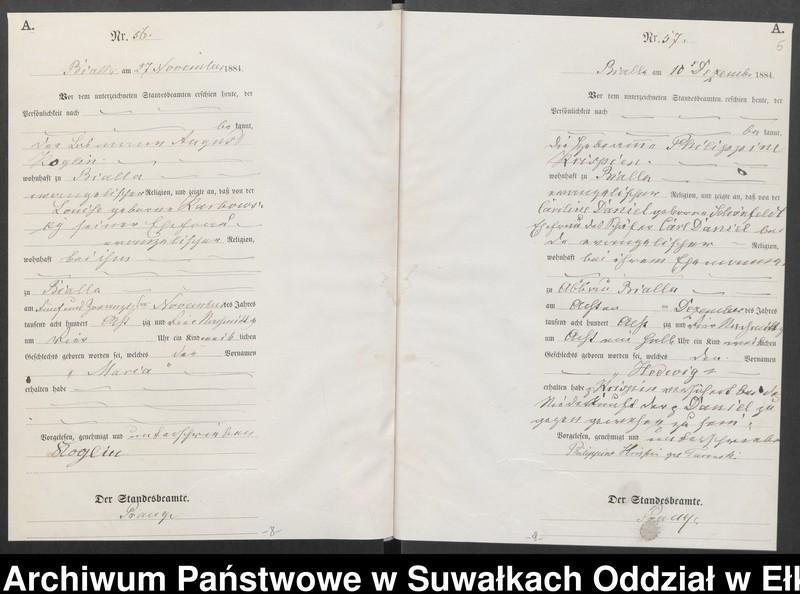 A.
Nr. 56.
Bialla am 27 November 1884.
Vor dem unterzeichneten Standesbeamten erschien heute, der
Persönlichkeit nach
be kannt,
der August
Koglin
wohnhaft zu Bialla
evangelischer Religion, und zeigte an, daß von der
Louise geborene Karkows-
ky seiner Ehefrau
evangelischer Religion,
wohnhaft bei ihm
zu Bialla
am fünf und zwanzigsten November des Jahres
tausend acht hundert Acht zig und vier Nachmittags
um vier Uhr ein Kind weiblichen
Geschlechts geboren worden sei, welches den Vornamen
„Maria“
erhalten habe
Vorgelesen, genehmigt und unterschrieben
Koglin
Der Standesbeamte.
Prange
-8-
A.
5
Nr. 57.
Bialla am 10 Dezember 1884.
Vor dem unterzeichneten Standesbeamten erschien heute, der
Persönlichkeit nach
be kannt,
die Hebamme Philippine
Krispien
wohnhaft zu Bialla
evangelischer Religion, und zeigte an, daß von der
Caroline Daniel geborene Schönfeldt
Ehefrau des Carl Daniel bei
de evangelischer Religion,
wohnhaft bei ihrem Ehemanne
zu Abbau Bialla
am Achten Dezember des Jahres
tausend acht hundert Acht zig und vier Nachmittags
um Acht ein halb Uhr ein Kind weiblichen
Geschlechts geboren worden sei, welches den Vornamen
„Hedwig“
erhalten habe, Krispien versichert bei der
Niederkunft der Daniel zu
gegen gewesen zu sein.
Vorgelesen, genehmigt und unterschrieben
Philippine Krispin geb
Der Standesbeamte.
Prange
-9-
Archiwum Państwowe w Suwałkach Oddział w Ełk